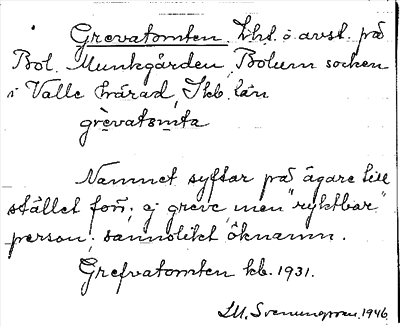 Grevatomten. Lht. å avst. på
Bol. Munkgården, Bolum socken
i Valle härad, Skb. län
grèvatɷmta
Namnet syftar på ägare till
stället förr; ej greve, men "ryktbar"
person; sannolikt öknamn.
Grefvatomten kb. 1931.
Svenungsson. 1946